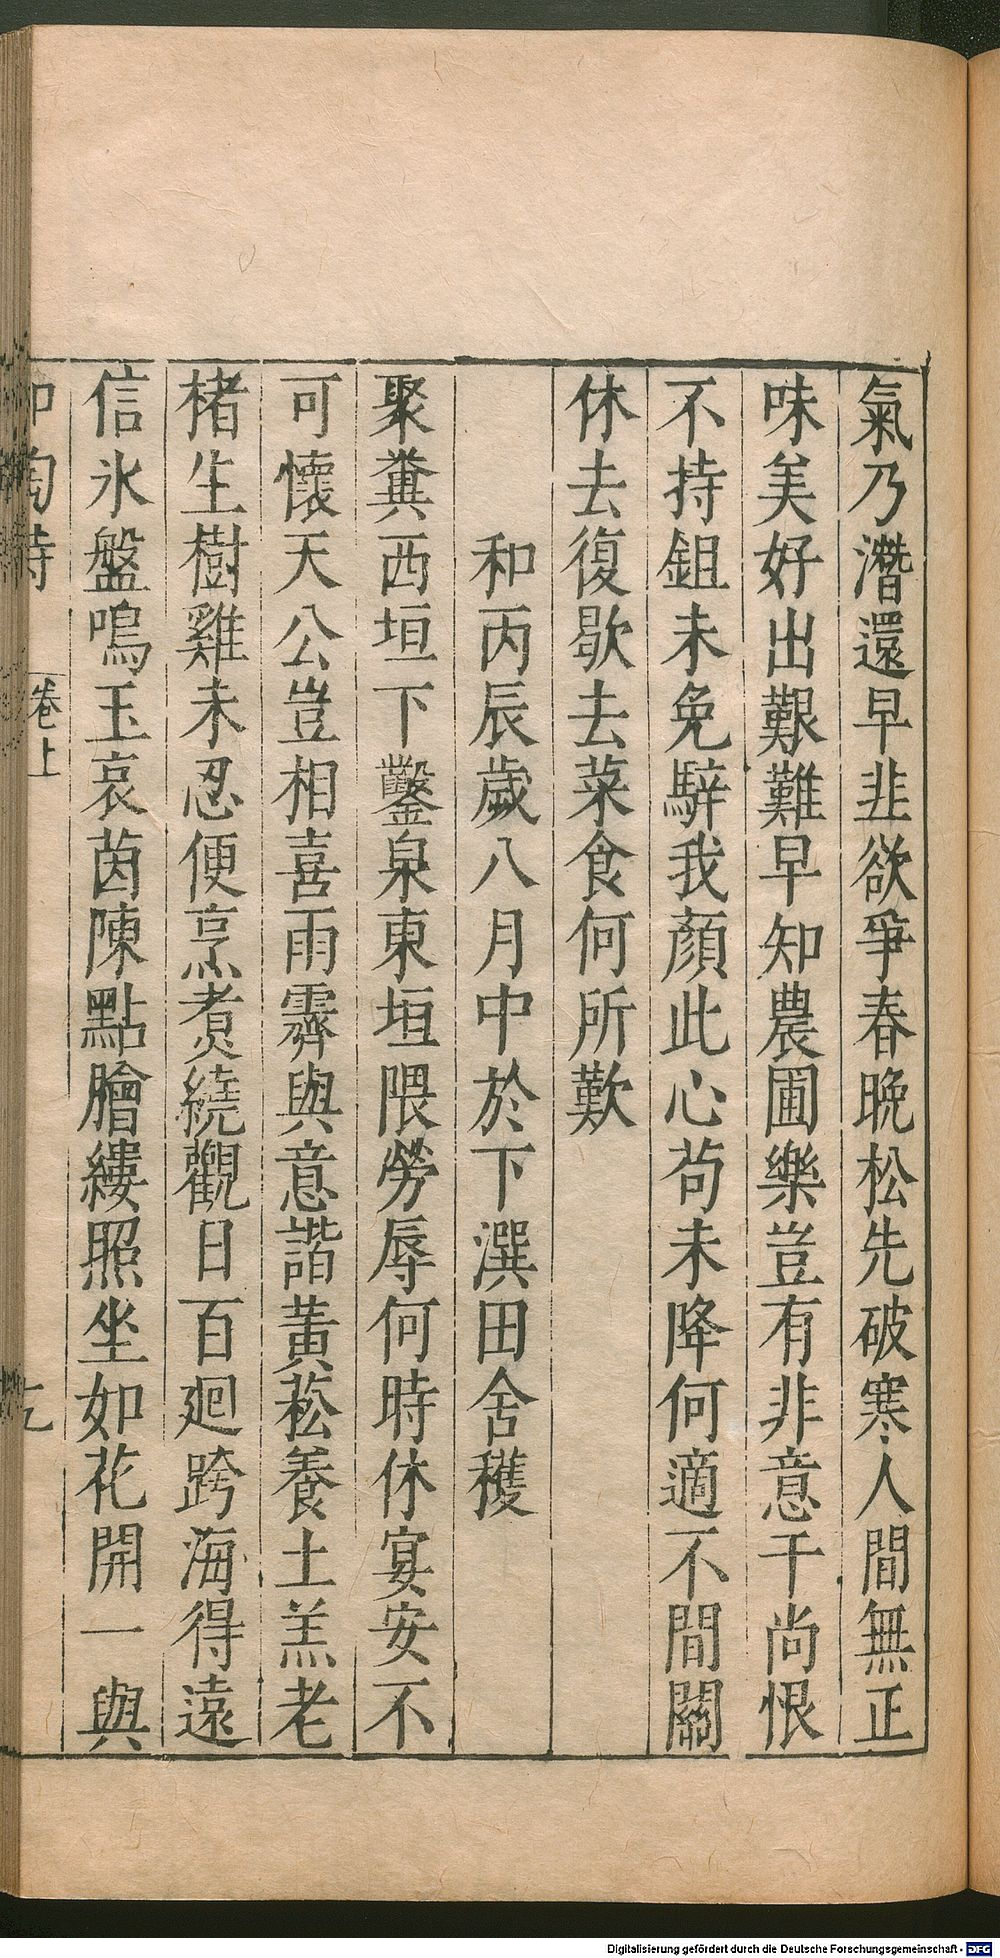 氣乃潛還早韭欲爭春晚松先破寒人間無正
味美好出艱難早知農圃樂豈有非意干尚恨
不持鉏未免騂我顏此心苟未降何適不間關
休去復歇去菜食何所歎
和丙辰歲八月中於下潠田舍穫
聚糞西垣下鑿泉東垣隈勞辱何時休宴安不
可懷天公豈相喜雨霽與意諧黃菘養土羔老
楮生樹雞未忍便烹煮繞觀日百廻跨海得遠
信氷盤鳴玉哀茵陳點膾縷照坐如花開一與
和陶詩 卷上
Digitalisierung gefördert durch die Deutsche Forschungsgemeinschaft - DFG